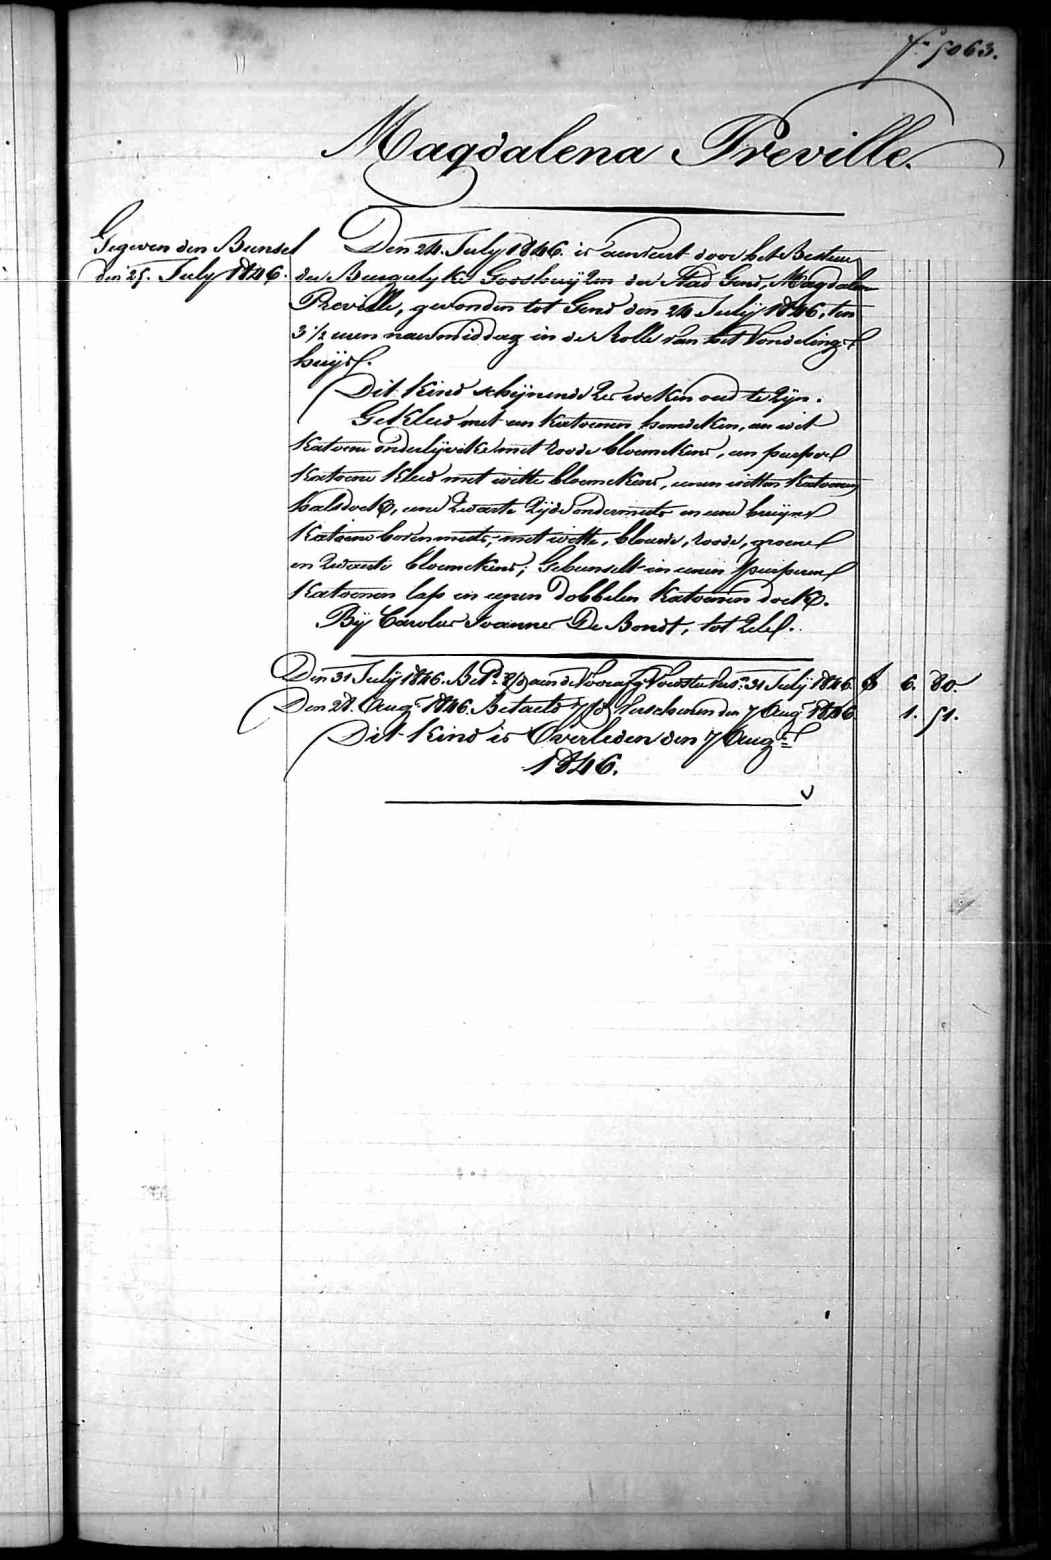 f.° 5063.
Magdalena Preville.
Gegeven den Bunsel
den 25. July 1846.
Den 24. July 1846. is aenveert door het Bestuer
der Burgelyke Godshuyzen der Stad Gend, Magdalena
Preville, gevonden tot Gend den 24 July 1846, ten
3 1/2 uren naermiddag in de Rolle van het Vondelings
huys.
Dit kind schynende zes weken oud te zyn.
Gekleed met een katoenen hemdeken, een wit
katoene onderlyveke met roode bloemekens, een purper
katoene kleed met witte bloemekens, eenen witten katoenen
halsdoek, eene zwarte zyde ondermuts en eene bruyne
katoene bovenmuts, met witte, blauwe, roode, groene
en zwarte bloemekens; Gebunselt in eenen purperen
katoenen lap en eenen dobbelen katoenen doek.
By Carolus Joannes De Bondt, tot Zele.
Den 31 July 1846. Bet. aen de Vooraf Voedster Vers. 31 July 1846 f 6. 80.
Den 28. Aug. 1846. Betaelt Verschenen den 7 Aug. 1846 1. 51.
Dit kind is Overleden den 7 Aug.
1846.